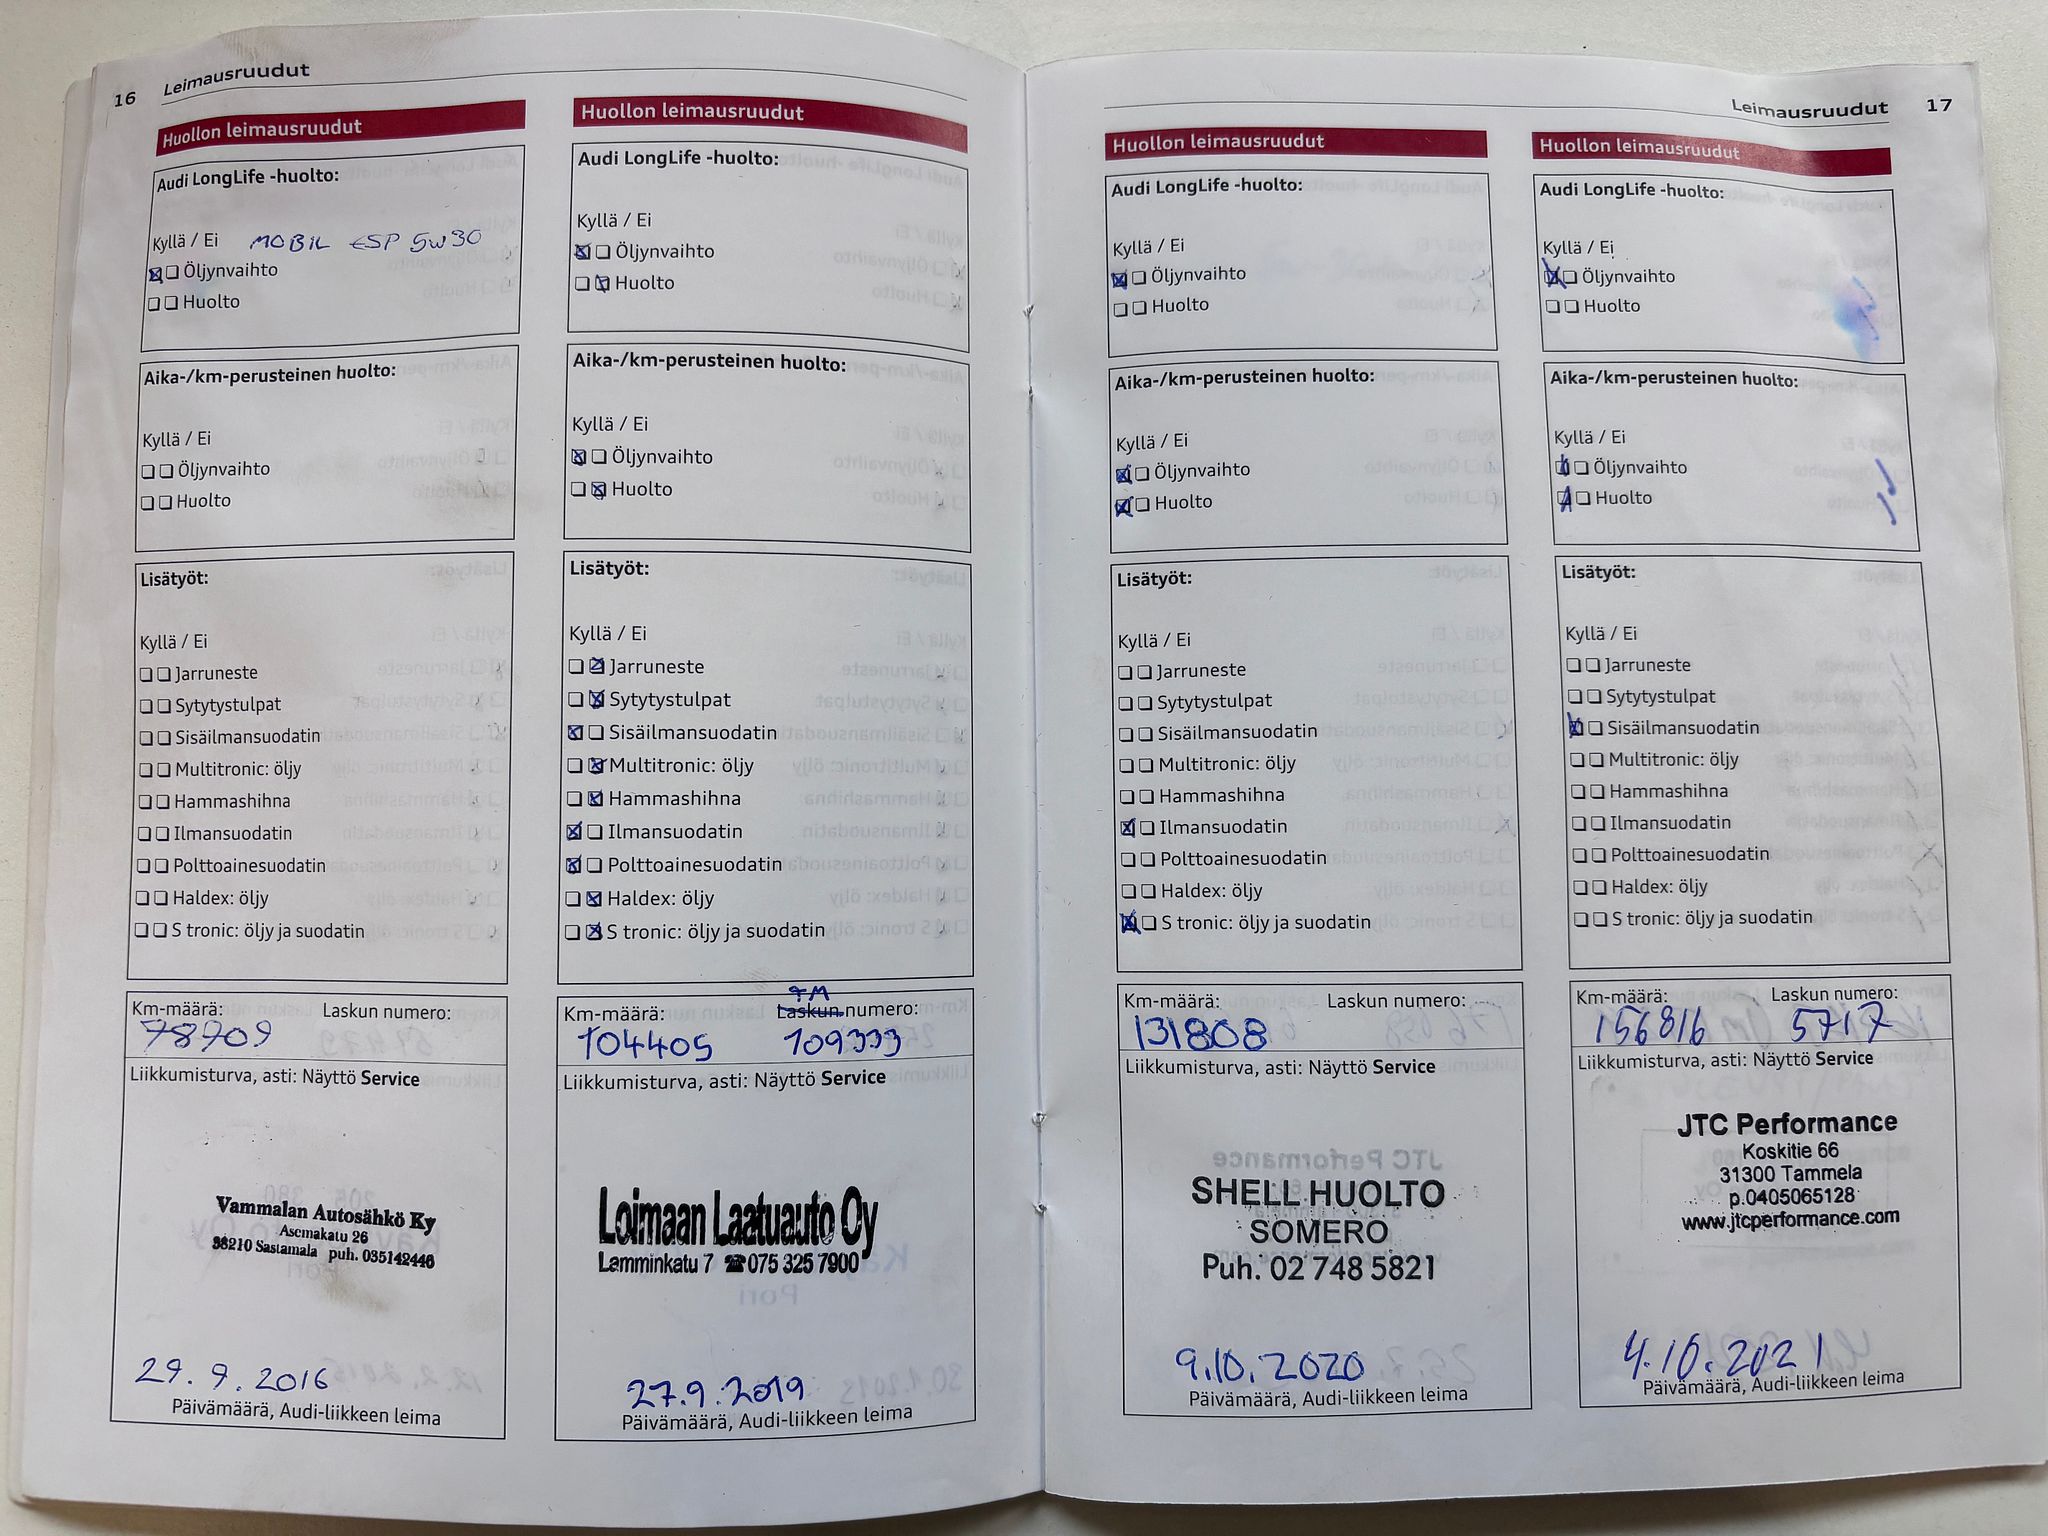 16 Leimausruudut
Huollon leimausruudut
Audi LongLife -huolto:
Kyllä / Ei MOBIL ESP 5W30
☒ ☐ Öljynvaihto
☐ ☐ Huolto
Aika-/km-perusteinen huolto:
Kyllä / Ei
☐ ☐ Öljynvaihto
☐ ☐ Huolto
Lisätyöt:
Kyllä / Ei
☐ ☐ Jarruneste
☐ ☐ Sytytystulpat
☐ ☐ Sisäilmansuodatin
☐ ☐ Multitronic: öljy
☐ ☐ Hammashihna
☐ ☐ Ilmansuodatin
☐ ☐ Polttoainesuodatin
☐ ☐ Haldex: öljy
☐ ☐ S tronic: öljy ja suodatin
Km-määrä: Laskun numero:
78709
Liikkumisturva, asti: Näyttö Service
Vammalan Autosähkö Ky
Asemakatu 26
38210 Sastamala puh. 035142446
29.9.2016
Päivämäärä, Audi-liikkeen leima
Huollon leimausruudut
Audi LongLife -huolto:
Kyllä / Ei
☒ ☐ Öljynvaihto
☐ ☒ Huolto
Aika-/km-perusteinen huolto:
Kyllä / Ei
☒ ☐ Öljynvaihto
☐ ☒ Huolto
Lisätyöt:
Kyllä / Ei
☐ ☒ Jarruneste
☐ ☒ Sytytystulpat
☒ ☐ Sisäilmansuodatin
☐ ☒ Multitronic: öljy
☐ ☒ Hammashihna
☒ ☐ Ilmansuodatin
☒ ☐ Polttoainesuodatin
☐ ☒ Haldex: öljy
☐ ☒ S tronic: öljy ja suodatin
Km-määrä: Laskun numero:
104405 109333
Liikkumisturva, asti: Näyttö Service
Loimaan Laatuauto Oy
Lamminkatu 7 ☎075 325 7900
27.9.2019
Päivämäärä, Audi-liikkeen leima
Leimausruudut 17
Huollon leimausruudut
Audi LongLife -huolto:
Kyllä / Ei
☒ ☐ Öljynvaihto
☐ ☐ Huolto
Aika-/km-perusteinen huolto:
Kyllä / Ei
☒ ☐ Öljynvaihto
☒ ☐ Huolto
Lisätyöt:
Kyllä / Ei
☐ ☐ Jarruneste
☐ ☐ Sytytystulpat
☐ ☐ Sisäilmansuodatin
☐ ☐ Multitronic: öljy
☐ ☐ Hammashihna
☒ ☐ Ilmansuodatin
☐ ☐ Polttoainesuodatin
☐ ☐ Haldex: öljy
☒ ☐ S tronic: öljy ja suodatin
Km-määrä: Laskun numero:
131808
Liikkumisturva, asti: Näyttö Service
SHELL HUOLTO
SOMERO
Puh. 02 748 5821
9.10.2020
Päivämäärä, Audi-liikkeen leima
Huollon leimausruudut
Audi LongLife -huolto:
Kyllä / Ei
☒ ☐ Öljynvaihto
☐ ☐ Huolto
Aika-/km-perusteinen huolto:
Kyllä / Ei
☒ ☐ Öljynvaihto
☒ ☐ Huolto
Lisätyöt:
Kyllä / Ei
☐ ☐ Jarruneste
☐ ☐ Sytytystulpat
☒ ☐ Sisäilmansuodatin
☐ ☐ Multitronic: öljy
☐ ☐ Hammashihna
☐ ☐ Ilmansuodatin
☐ ☐ Polttoainesuodatin
☐ ☐ Haldex: öljy
☐ ☐ S tronic: öljy ja suodatin
Km-määrä: Laskun numero:
156816 5717
Liikkumisturva, asti: Näyttö Service
JTC Performance
Koskitie 66
31300 Tammela
p.0405065128
www.jtcperformance.com
4.10.2021
Päivämäärä, Audi-liikkeen leima